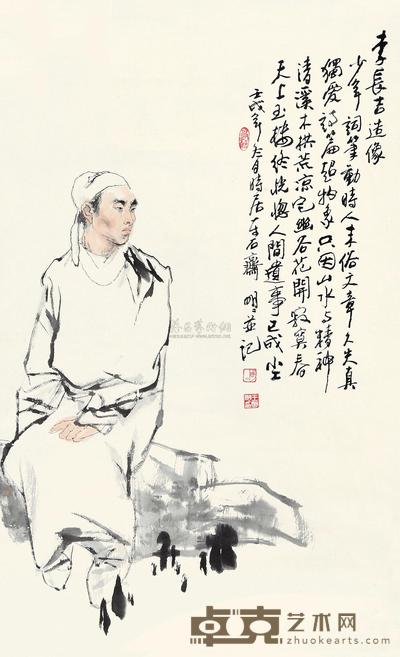 李長吉造像
少年詞筆動時人末俗文章久失真
獨爱詩篇超物象只因山水与精神
清溪木拱荒凉宅幽谷花開寂寞春
天上玉樓終恍惚人間遺事已成尘
壬戌年冬月時居石齋明明並記
卓克艺术网
zhuokearts.com